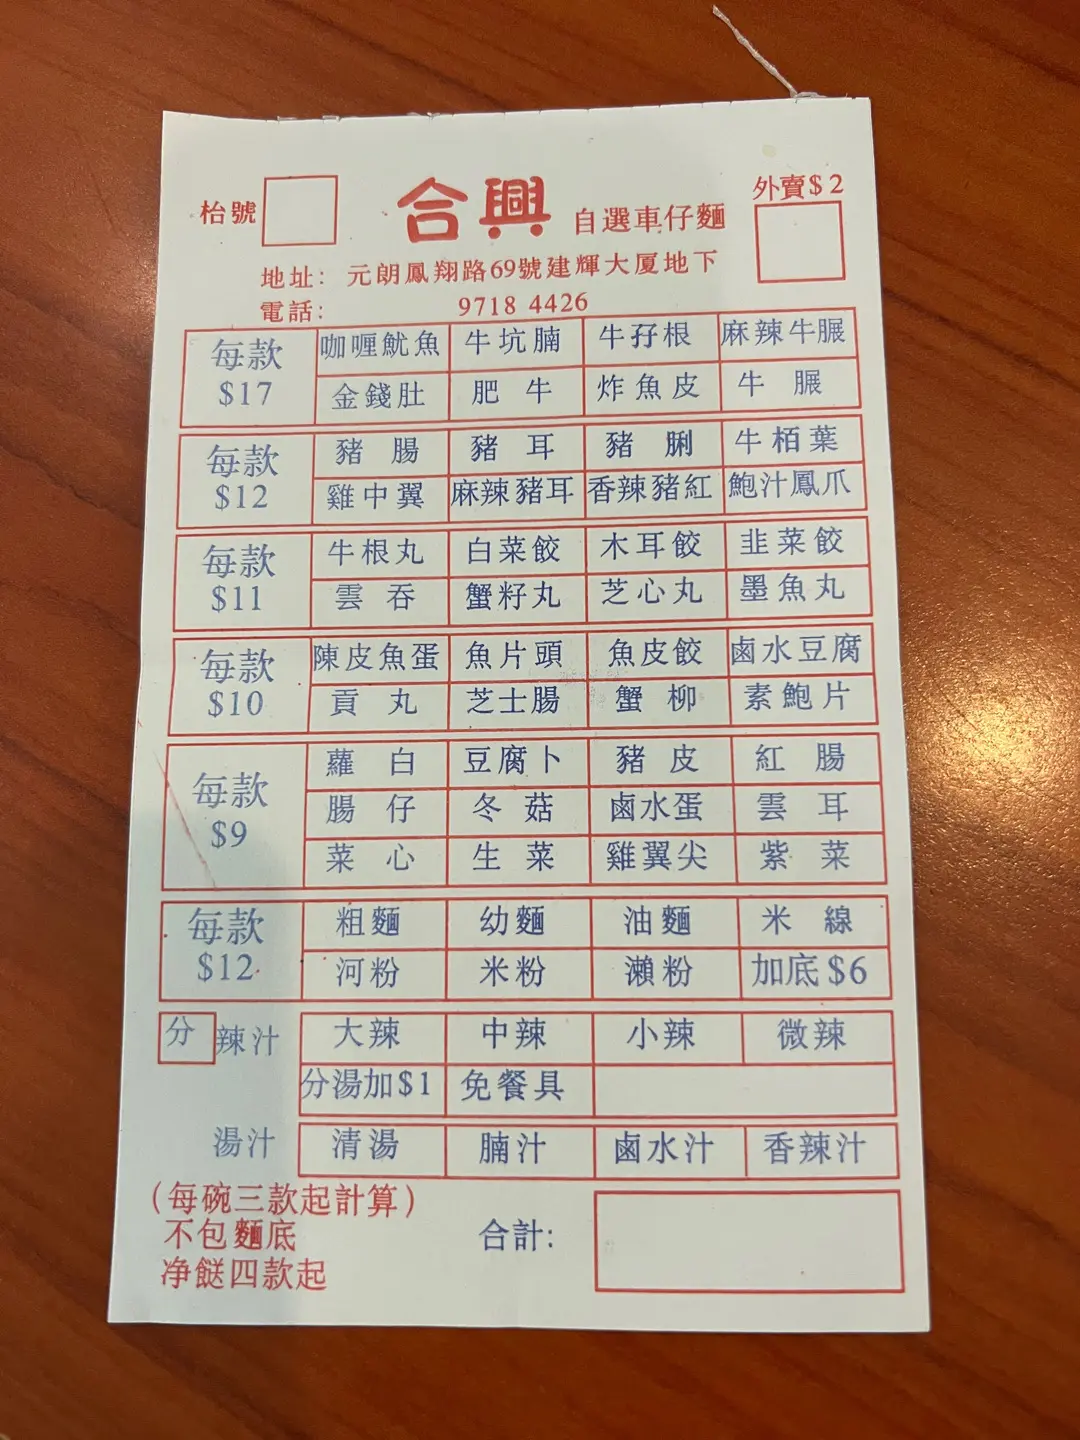 枱號 合興 自選車仔麵 外賣$2
地址: 元朗鳳翔路69號建輝大厦地下
電話: 9718 4426
每款 $17
咖喱魷魚 牛坑腩 牛孖根 麻辣牛𦟌
金錢肚 肥牛 炸魚皮 牛𦟌
每款 $12
豬腸 豬耳 豬脷 牛栢葉
雞中翼 麻辣豬耳 香辣豬紅 鮑汁鳳爪
每款 $11
牛根丸 白菜餃 木耳餃 韭菜餃
雲吞 蟹籽丸 芝心丸 墨魚丸
每款 $10
陳皮魚蛋 魚片頭 魚皮餃 鹵水豆腐
貢丸 芝士腸 蟹柳 素鮑片
每款 $9
蘿白 豆腐卜 豬皮 紅腸
腸仔 冬菇 鹵水蛋 雲耳
菜心 生菜 雞翼尖 紫菜
每款 $12
粗麵 幼麵 油麵 米線
河粉 米粉 瀨粉 加底$6
分 辣汁 大辣 中辣 小辣 微辣
分湯加$1 免餐具
湯汁 清湯 腩汁 鹵水汁 香辣汁
(每碗三款起計算)
不包麵底
净餸四款起
合計: